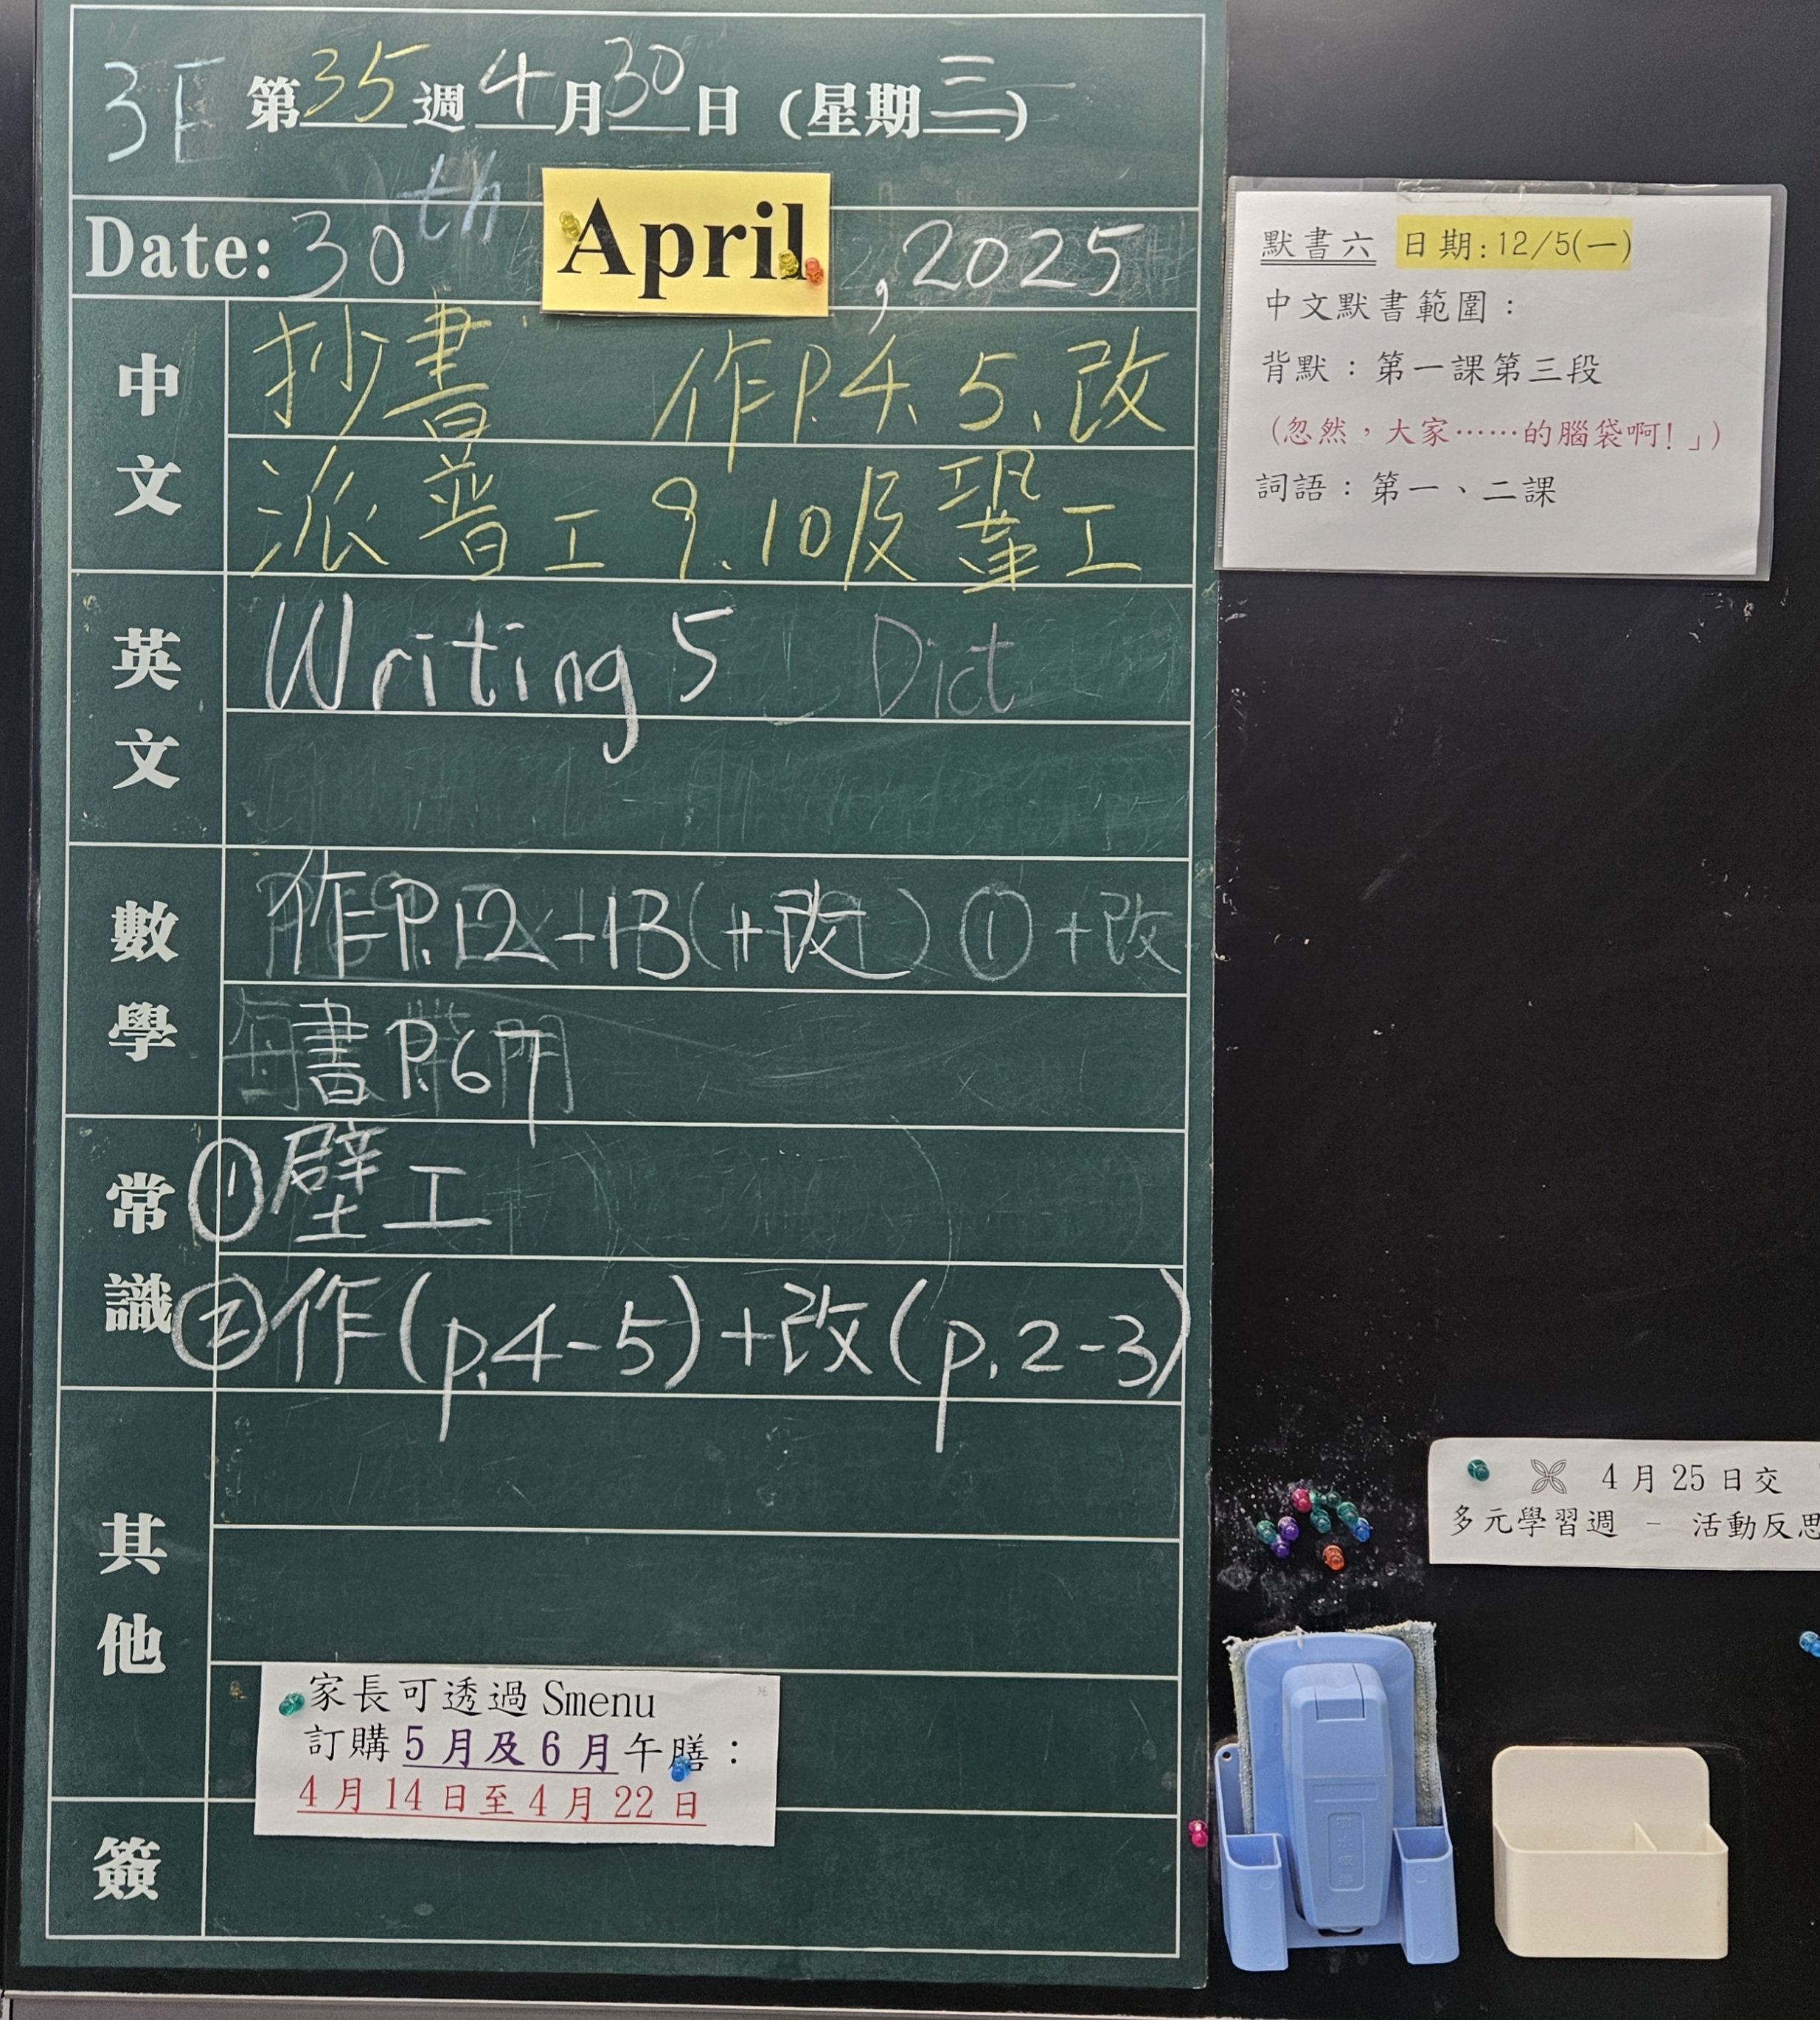 3E 第35週4月30日(星期三)
Date: 30th April, 2025
中文
抄書 作P.4、5、改
派普工9.10及鞏工
英文
Writing 5 Dict
數學
作P.12-13(+改) ① +改
書P.67
常識
①壁工
②作(p.4-5)+改(p.2-3)
其他
家長可透過 Smenu
訂購5月及6月午膳:
4月14日至4月22日
簽
默書六 日期:12/5(一)
中文默書範圍:
背默:第一課第三段
(忽然,大家……的腦袋啊!」)
詞語:第一、二課
4月25日交
多元學習週 - 活動反思